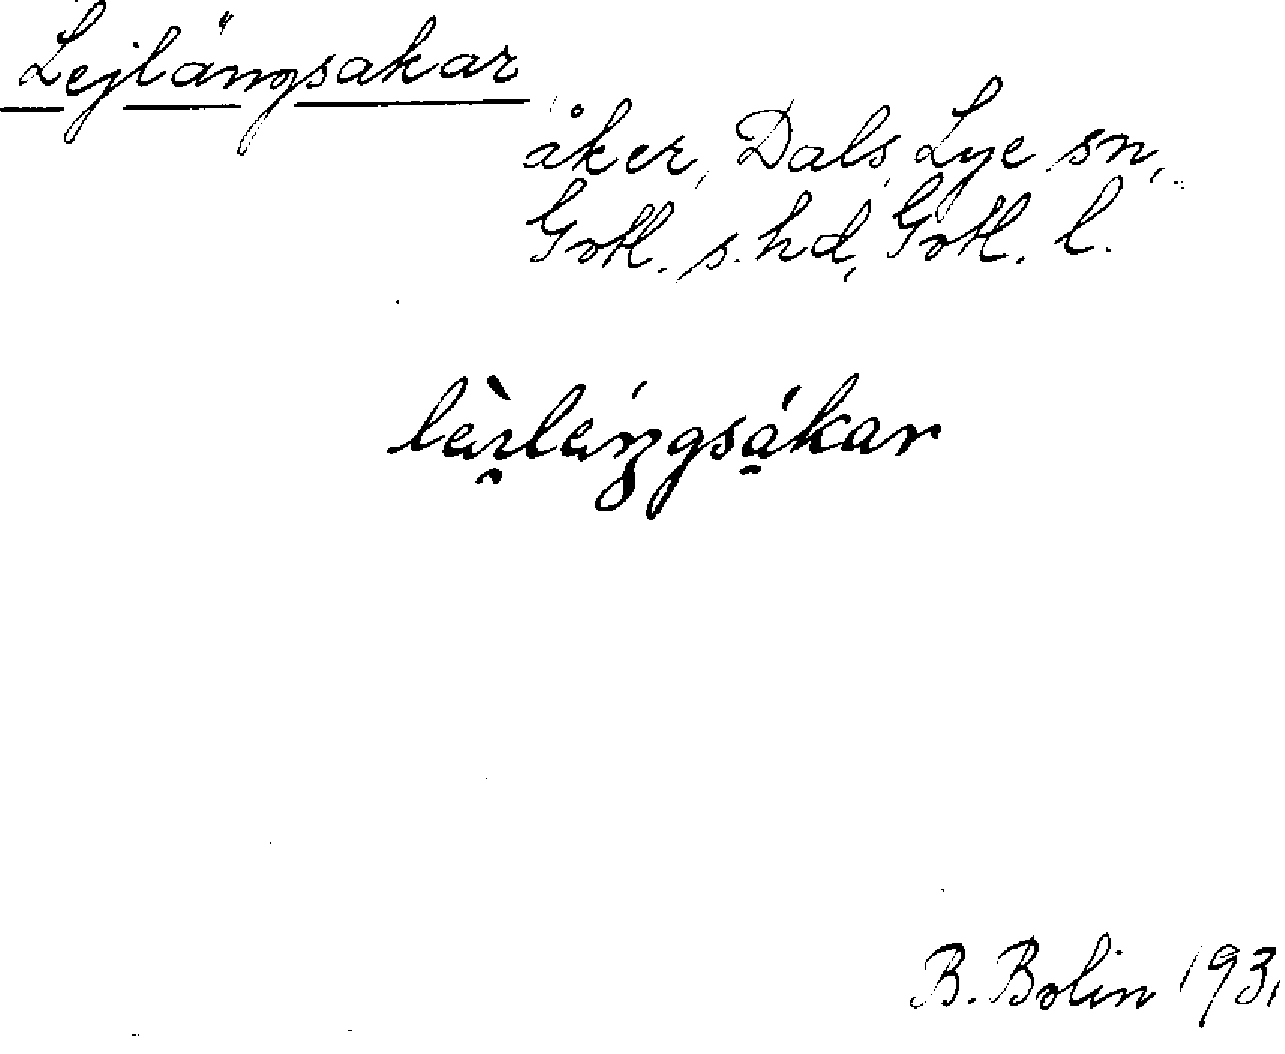 Lejlängsakar
åker, Dals, Lye sn,
Gotl. s. hd, Gotl. l.
B. Bolin 193